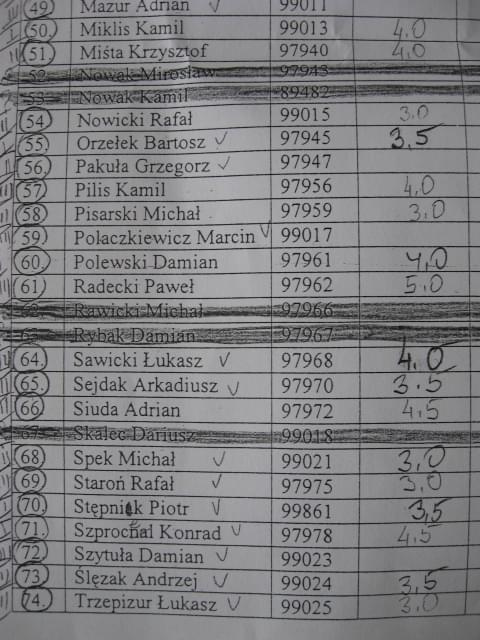 49. Mazur Adrian ✓ 99011
50. Miklis Kamil 99013 4,0
51. Miśta Krzysztof 97940 4,0
52. Nowak Mirosław 97943
53. Nowak Kamil 89482
54 Nowicki Rafał 99015 3.0
55. Orzełek Bartosz ✓ 97945 3,5
56. Pakuła Grzegorz ✓ 97947
57 Pilis Kamil 97956 4,0
58 Pisarski Michał 97959 3,0
59. Połaczkiewicz Marcin ✓ 99017
60. Polewski Damian 97961 4,0
61 Radecki Paweł 97962 5.0
62. Rawicki Michał 97966
63. Rybak Damian 97967
64. Sawicki Łukasz ✓ 97968 4.0
65. Sejdak Arkadiusz ✓ 97970 3.5
66 Siuda Adrian 97972 4,5
67. Skalec Dariusz 99018
68 Spek Michał ✓ 99021 3,0
69 Staroń Rafał ✓ 97975 3,0
70. Stępniak Piotr ✓ 99861 3,5
71. Szprochal Konrad ✓ 97978 4,5
72 Szytuła Damian ✓ 99023
73 Ślęzak Andrzej ✓ 99024 3,5
74. Trzepizur Łukasz ✓ 99025 3.0